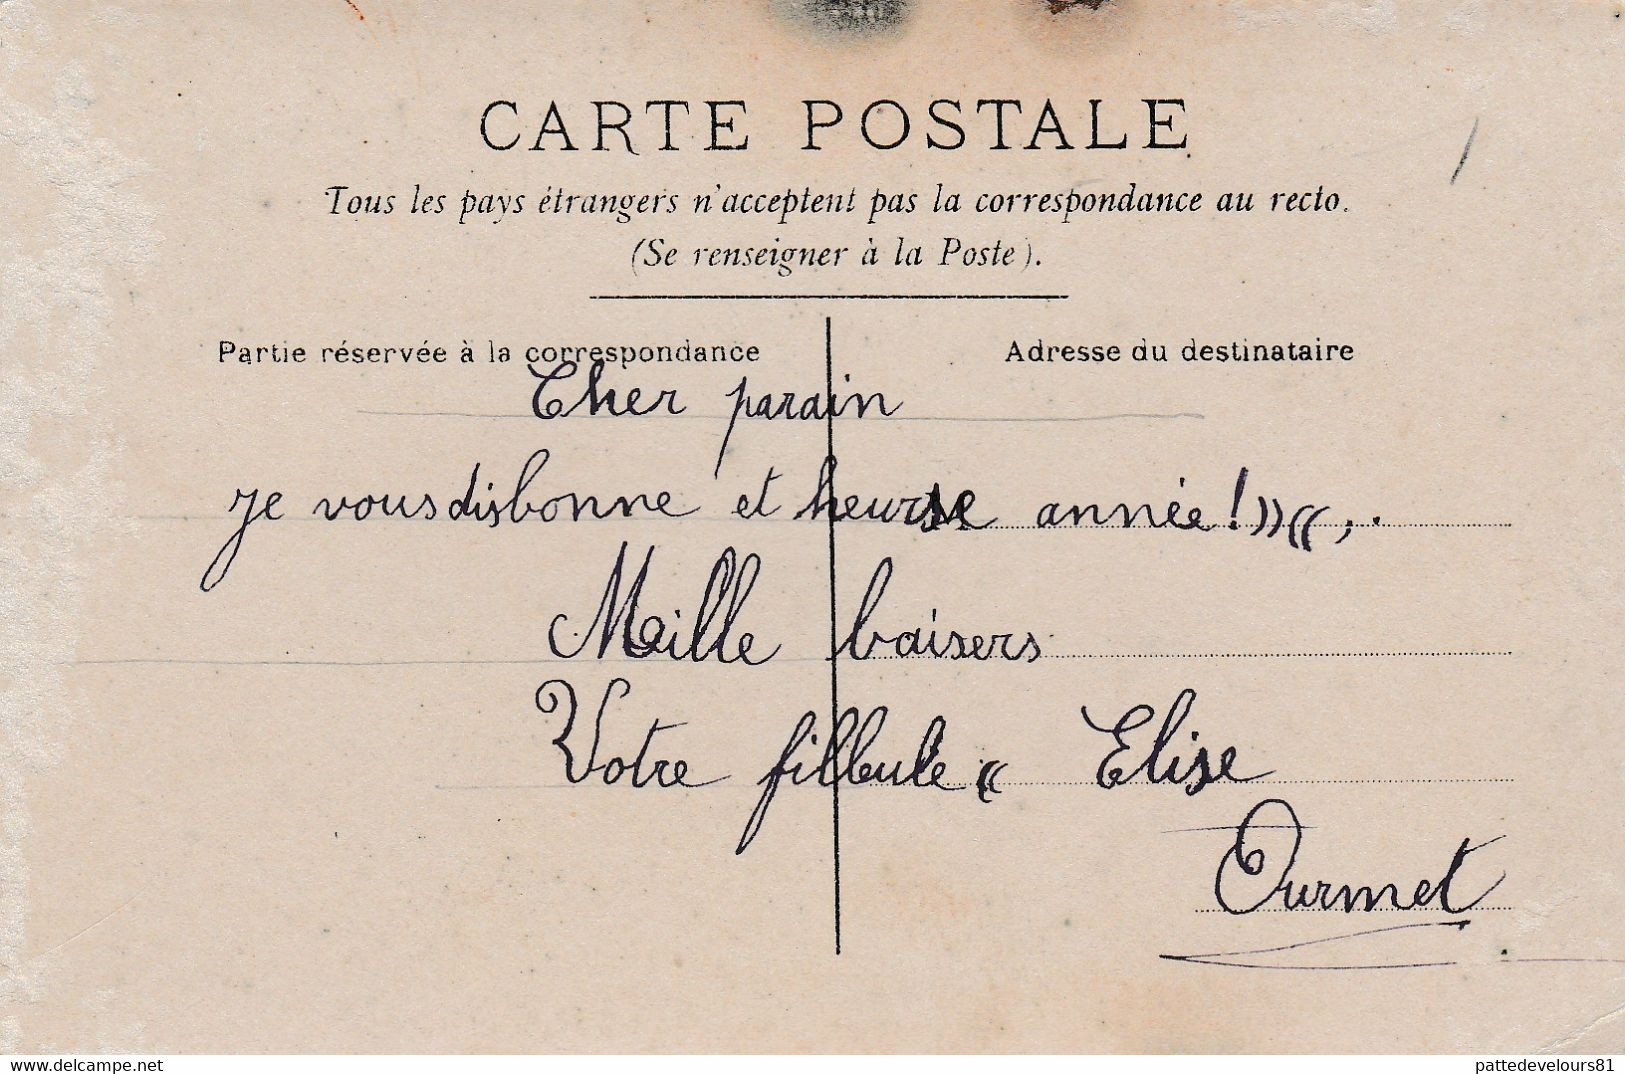 CARTE POSTALE
Tous les pays étrangers n'acceptent pas la correspondance au recto.
(Se renseigner à la Poste).
Partie réservée à la correspondance
Adresse du destinataire
Cher parain
je vous dis bonne et heurse année ! »«,.
Mille baisers
Votre filleule « Elise
Ourmet
pattedevelours81